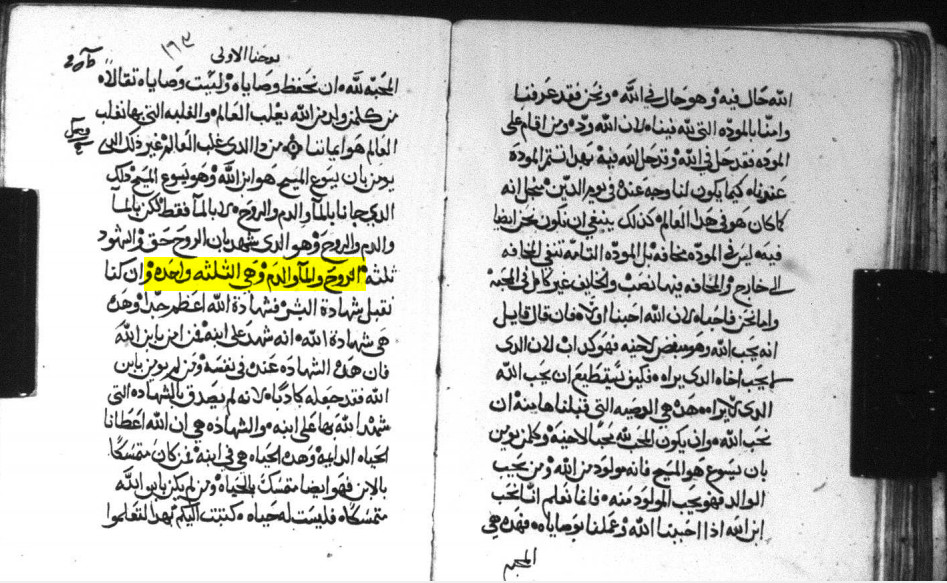 الله حال فيه وهو حال في الله ونحن فقد عرفنا
وامنا بالموده التي لله فينا لان الله ود ومن اقام على
الموده فقد حل في الله وقد حل الله فيه بهدا تتم الموده
عندنا كيما يكون لنا وجه عنده في يوم الدين من اجل انه
كما كان هو في هدا العالم كدلك ينبغي ان نكون نحن ايضا
فيه ليس في الموده مخافه بل الموده التامه تنفي المخافه
الى خارج والمخافه فيها نصب والخايف غير كامل في المحبه
واما نحن فاحباه لان الله احبنا اولا فان قال قايل
انه يحب الله وهو مبغض لاخيه فهو كداب لان الدى
لا يحب اخاه الدى يراه فكيف يستطيع ان يحب الله
الدى لا يراه هده هي الوصيه التي قبلناها منه ان
نحب الله وان يكون المحب لله محبا لاخيه وكل من يومن
بان يسوع هو المسيح فانه مولود من الله ومن يحب
الوالد فهو يحب المولود منه فانما نعلم اننا نحب
ابن الله ادا احببنا الله وعملنا بوصاياه فهده هي
المحبه
يوحنا الاولى
١٦٣
المحبه لله ان نحفظ وصاياه وليست وصاياه ثقالا
من كلمن ولد من الله يغلب العالم والغلبه التي بها نغلب
العالم هو ايماننا من دا الدى غلب العالم غير دلك الدى
يومن بان يسوع المسيح هو ابن الله وهو يسوع المسيح دلك
الدى جانا بالما والدم والروح لا بالما فقط لكن بالما
والدم والروح وهو الدى شهد بان الروح حق والشهود
ثلثة الروح والما والدم وهي الثلثه واحده وان كنا
نقبل شهادة البشر فشهادة الله اعظم جدا وهده
هي شهادة الله انه شهد على ابنه فمن امن بابن الله
فان هده الشهاده عنده في نفسه ومن لم يومن بابن
الله فقد جعله كادبا لانه لم يصدق بالشهاده التي
شهد الله بها على ابنه والشهاده هي ان الله اعطانا
الحياه الدايمه وهده الحياه هي في ابنه فمن كان متمسكا
بالابن فهو ايضا متمسك بالحياه ومن لم يكن بابن الله
متمسكا فليست له حياه كتبت اليكم بهدا لتعلموا